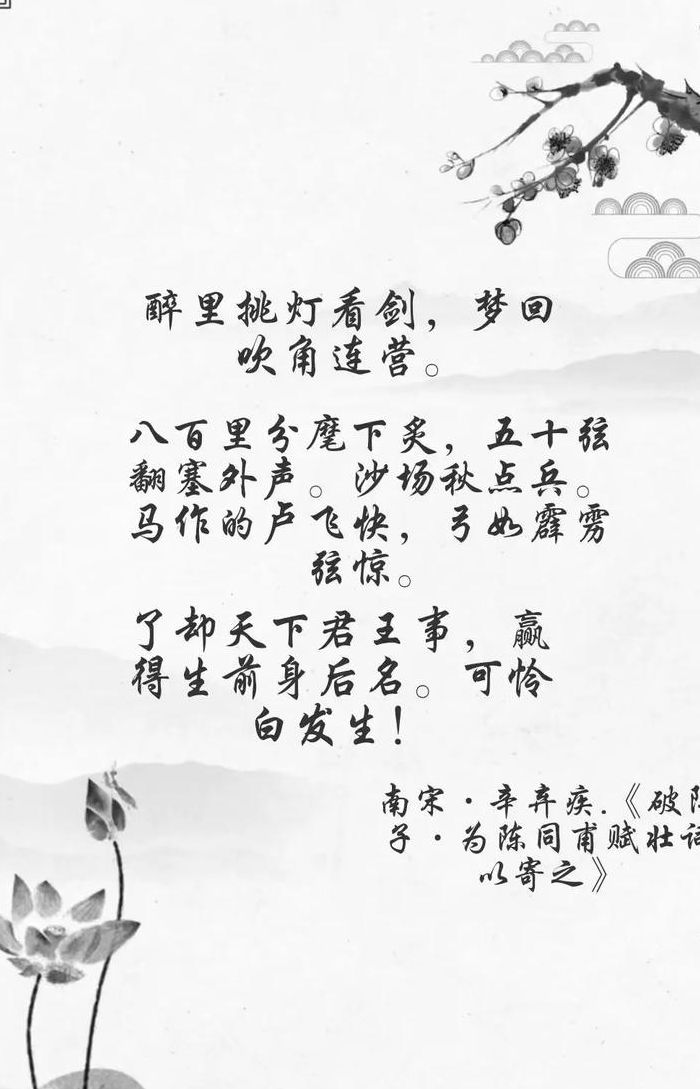 醉里挑灯看剑，梦回
吹角连营。
八百里分麾下炙，五十弦
翻塞外声。沙场秋点兵。
马作的卢飞快，弓如霹雳
弦惊。
了却天下君王事，赢
得生前身后名。可怜
白发生！
南宋·辛弃疾.《破
子·为陈同甫赋壮
以寄之》